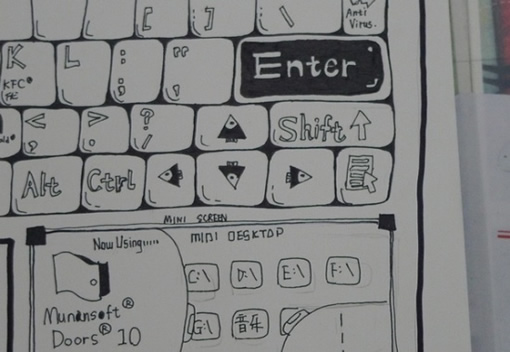 [ ] \ Anti
Virus.
K L : " Enter
KFC®
;
'
< > ? Shift ↑
, . /
Alt Ctrl
MINI SCREEN
Now Using..... MINI DESKTOP
C:\ D:\ E:\ F:\
Munansoft®
G:\ 音乐
Doors® 10